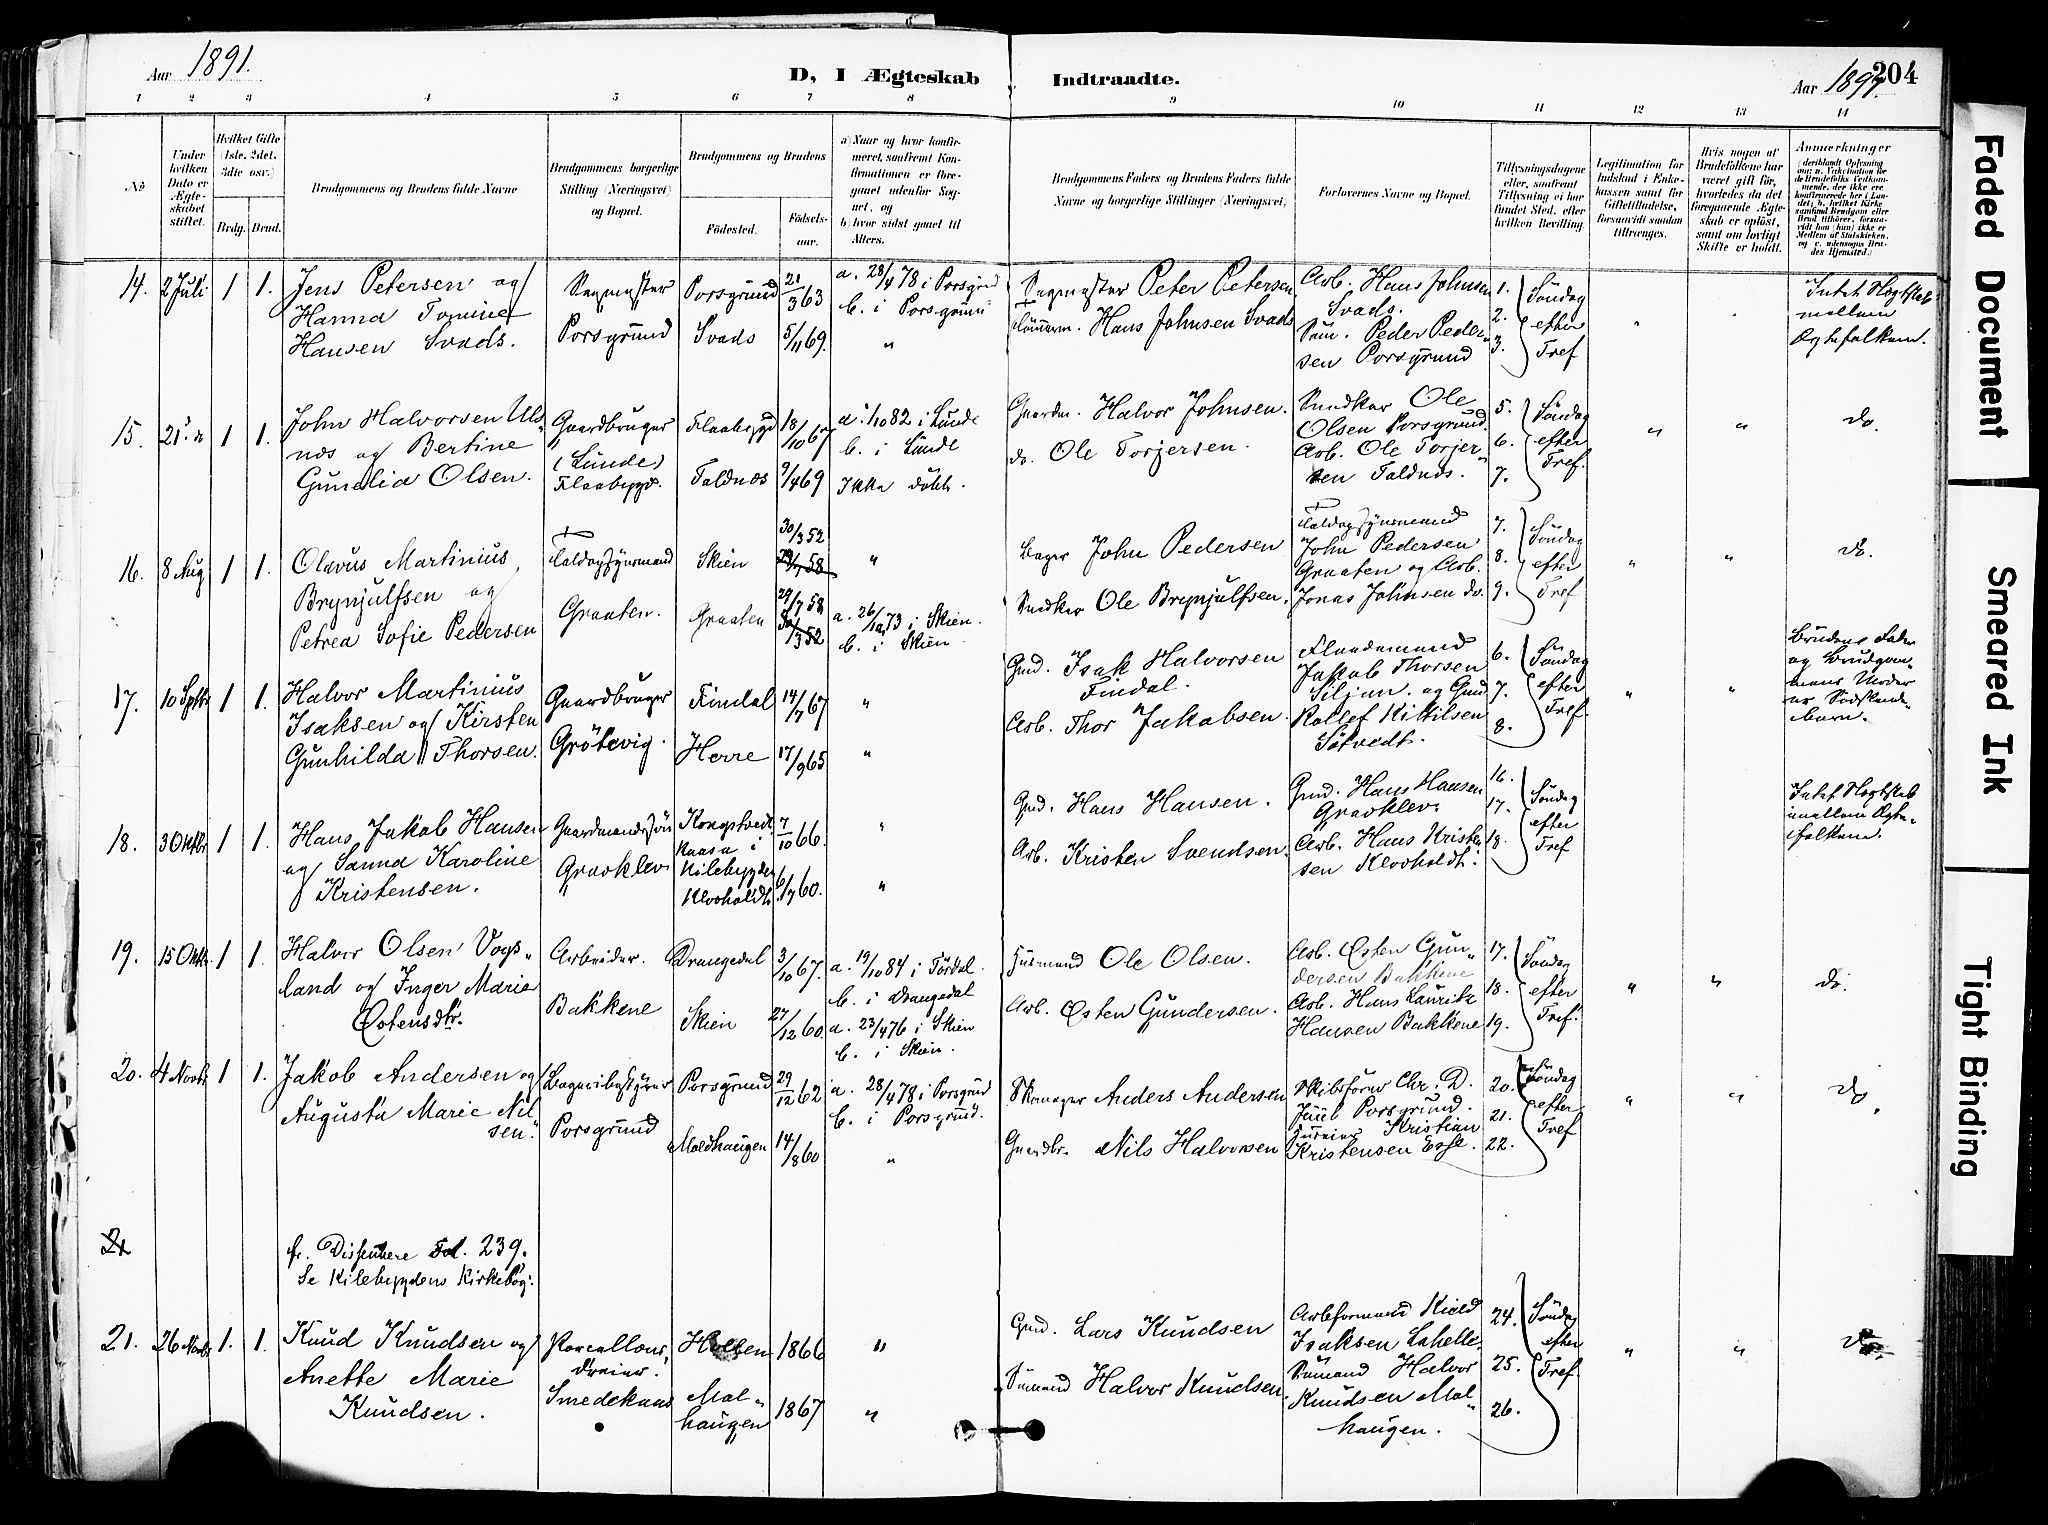 Aar 1891.
D, I Ægteskab
Indtraadte.
Aar 1891.
204
1 2 3 4 5 6 7 8 9 10 11 12 13 14
No
Under hvilken Dato er Ægteskabet stiftet.
Hvilket Gifte (1ste, 2det, 3die osv.)
Brdg. Brud.
Brudgommens og Brudens fulde Navne
Brudgommens borgerlige Stilling (Næringsvei) og Bopæl.
Brudgommens og Brudens
Fødested.
Fødselsaar.
a) Naar og hvor konfirmeret, saafremt Konfirmationen er foregaaet udenfor Sognet, og
b) hvor sidst gaaet til Alters.
Brudgommens Faders og Brudens Faders fulde Navne og borgerlige Stillinger (Næringsvei)
Forlovernes Navne og Bopæl.
Tillysningsdagene eller, saafremt Tillysning ei har fundet Sted, efter hvilken Bevilling.
Legitimation for Indskud i Enkekassen samt for Giftetilladelse, forsaavidt saadan tiltrænges.
Hvis nogen af Brudefolkene har været gift før, hvorledes da det foregaaende Ægteskab er opløst, samt om lovligt Skifte er holdt.
Anmærkninger
14. 2 Juli 1 1.
Jens Petersen og
Hanna Tomine
Hansen Svads.
Porsgrund
Porsgrund 21/3 63
Svads 5/11 69.
a. 28/4 78 i Porsgrund
b. i Porsgrund
"
Peter Petersen
Hans Johnsen Svads
Arb. Hans Johnsen
Svads.
Peder Pedersen Porsgrund
1.
2.
3.
Søndag
efter
Tref
Intet Slægtskab
mellem
Ægtefolkene.
15. 21 1 1.
John Halvorsen Ulsnæs og Bertine
Gunelia Olsen.
Gaardbruger
(Lunde)
Flaabygd.
Flaabygd 18/10 67
Foldnæs 9/4 69
a. 1/10 82 i Lunde
b. i Lunde
Ikke døbt.
Gaardm. Halvor Johnsen.
do. Ole Torjersen.
Snedker Ole
Olsen Porsgrund.
Arb. Ole Torjersen Foldnæs.
5.
6.
7.
Søndag
efter
Tref.
do.
16. 8 Aug 1 1.
Olavus Martinius
Brynjulfsen og
Petrea Sofie Pedersen
Graaten.
Skien
Graaten
30/3 52
29/7 58
29/7 58
30/3 52
"
a. 26/10 73 i Skien.
b. i Skien.
John Pedersen
Snedker Ole Brynjulfsen.
John Pedersen
Graaten og Arb.
Jonas Johnsen do.
7.
8.
9.
Søndag
efter
Tref
do.
17. 10 Septbr 1 1.
Halvor Martinius
Isaksen og Kirsten
Gunhilda Thorsen.
Gaardbruger
Grötevig.
Findal 14/7 67
Herre 17/9 65
"
"
Gmd. Isak Halvorsen
Findal.
Arb. Thor Jakobsen.
Jakob Thorsen
Siljan. og Gmd.
Rollef Kittilsen
6.
7.
8.
Søndag
efter
Tref.
Brudens Fader
og Brudgommens Moder
er Sødskendebarn.
18. 3 Oktbr 1 1.
Hans Jakob Hansen
og Sanna Karoline
Kristensen.
Gaardmandssön
Gravklev
Kilebygden
Klovholdt
7/10 66.
6/7 60.
"
"
Gmd. Hans Hansen.
Arb. Kristen Svendsen.
Gmd. Hans Hansen
Gravklev
Arb. Hans Kristensen Klovholdt.
16.
17.
18.
Søndag
efter
Tref
Intet Slægtskab
imellem Ægtefolkene.
19. 15 Oktbr 1 1.
Halvor Olsen Vogsland og Inger Marie
Östensdtr.
Arbeider.
Bakkene
Drangedal 3/10 67.
Skien 27/12 60.
a. 19/10 84 i Tördal.
b. i Drangedal
a. 23/4 76 i Skien
b. i Skien.
Husmand Ole Olsen.
Arb. Östen Gundersen.
Arb. Östen Gundersen Bakkene
Arb. Hans Lauritz
Hansen Bakkene
17.
18.
19.
Søndag
efter
Tref.
do.
20. 4 Novbr 1 1.
Jakob Andersen og
Augusta Marie Nilsen.
Bageribestyrer
Porsgrund
Porsgrund 29/12 62
Moldhaugen 14/8 60
a. 28/4 78 i Porsgrund
b. i Porsgrund.
"
Skomager Anders Andersen
Gaardbr. Nils Halvorsen
Skibsfører Chr. D.
Juul Porsgrund.
Kristian
Kristensen
20.
21.
22.
Søndag
efter
Tref
do.
21
fr. Dissentere Fol. 239.
Se Kilebygdens Kirkebog.
21. 26 Novbr 1. 1.
Knud Knudsen og
Anette Marie
Knudsen.
Porcellænsdreier.
Smedekaas
1866
Molhaugen 1867
"
"
Gmd. Lars Knudsen
Sømand Halvor Knudsen.
Arbformand
Isaksen
Sømand Halvor
Knudsen Molhaugen.
24.
25.
26.
Søndag
efter
Tref.
do.
Faded Document
Smeared Ink
Tight Binding